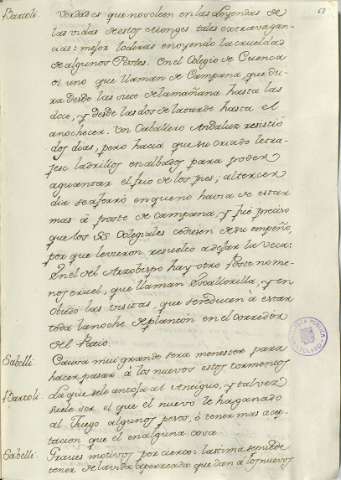 63
Bartoli. Verdades que no leen en las Leyendas de
las vidas de estos Monges tales extravagan-
cias: mejor lo dixeras en oyendo la crueldad
de algunos Postes. En el Colegio de Cuenca
ai uno que llaman de Campana, que du-
ra desde las nueve de la mañana hasta las
doce, y desde las dos de la tarde hasta el
anochecer. Un Caballero Andaluz resistió
dos dias, pero hacia que su criado le tra-
jese ladrillos enalbados para poder
aguantar el frio de los pies; al tercer
dia se aforró en que no havia de estar
mas á poste de campana, y fue preciso
que los SS. Colegiales cediesen de su empeño,
por que le vieron resuelto a dejar la Veca.
En el del Arzobispo hay otro Poste no me-
nos cruel, que llaman y en
las visitas, que se reducen a estar
toda la noche de planton en el corredor
del Patio.
Sabelli. Causa mui grande sera menester para
hacer pasar á los nuevos estos tormentos
Bartoli. La que se le antoja al Antiguo, y tal vez
suele ser, el que el nuevo le ha ganado
al Juego algunos pesos, ó tener mas acep-
tacion que el en alguna cosa.
Sabelli. Graves motivos por cierto: lastima se puede
tener de la vida aperreada que dan a los nuevos